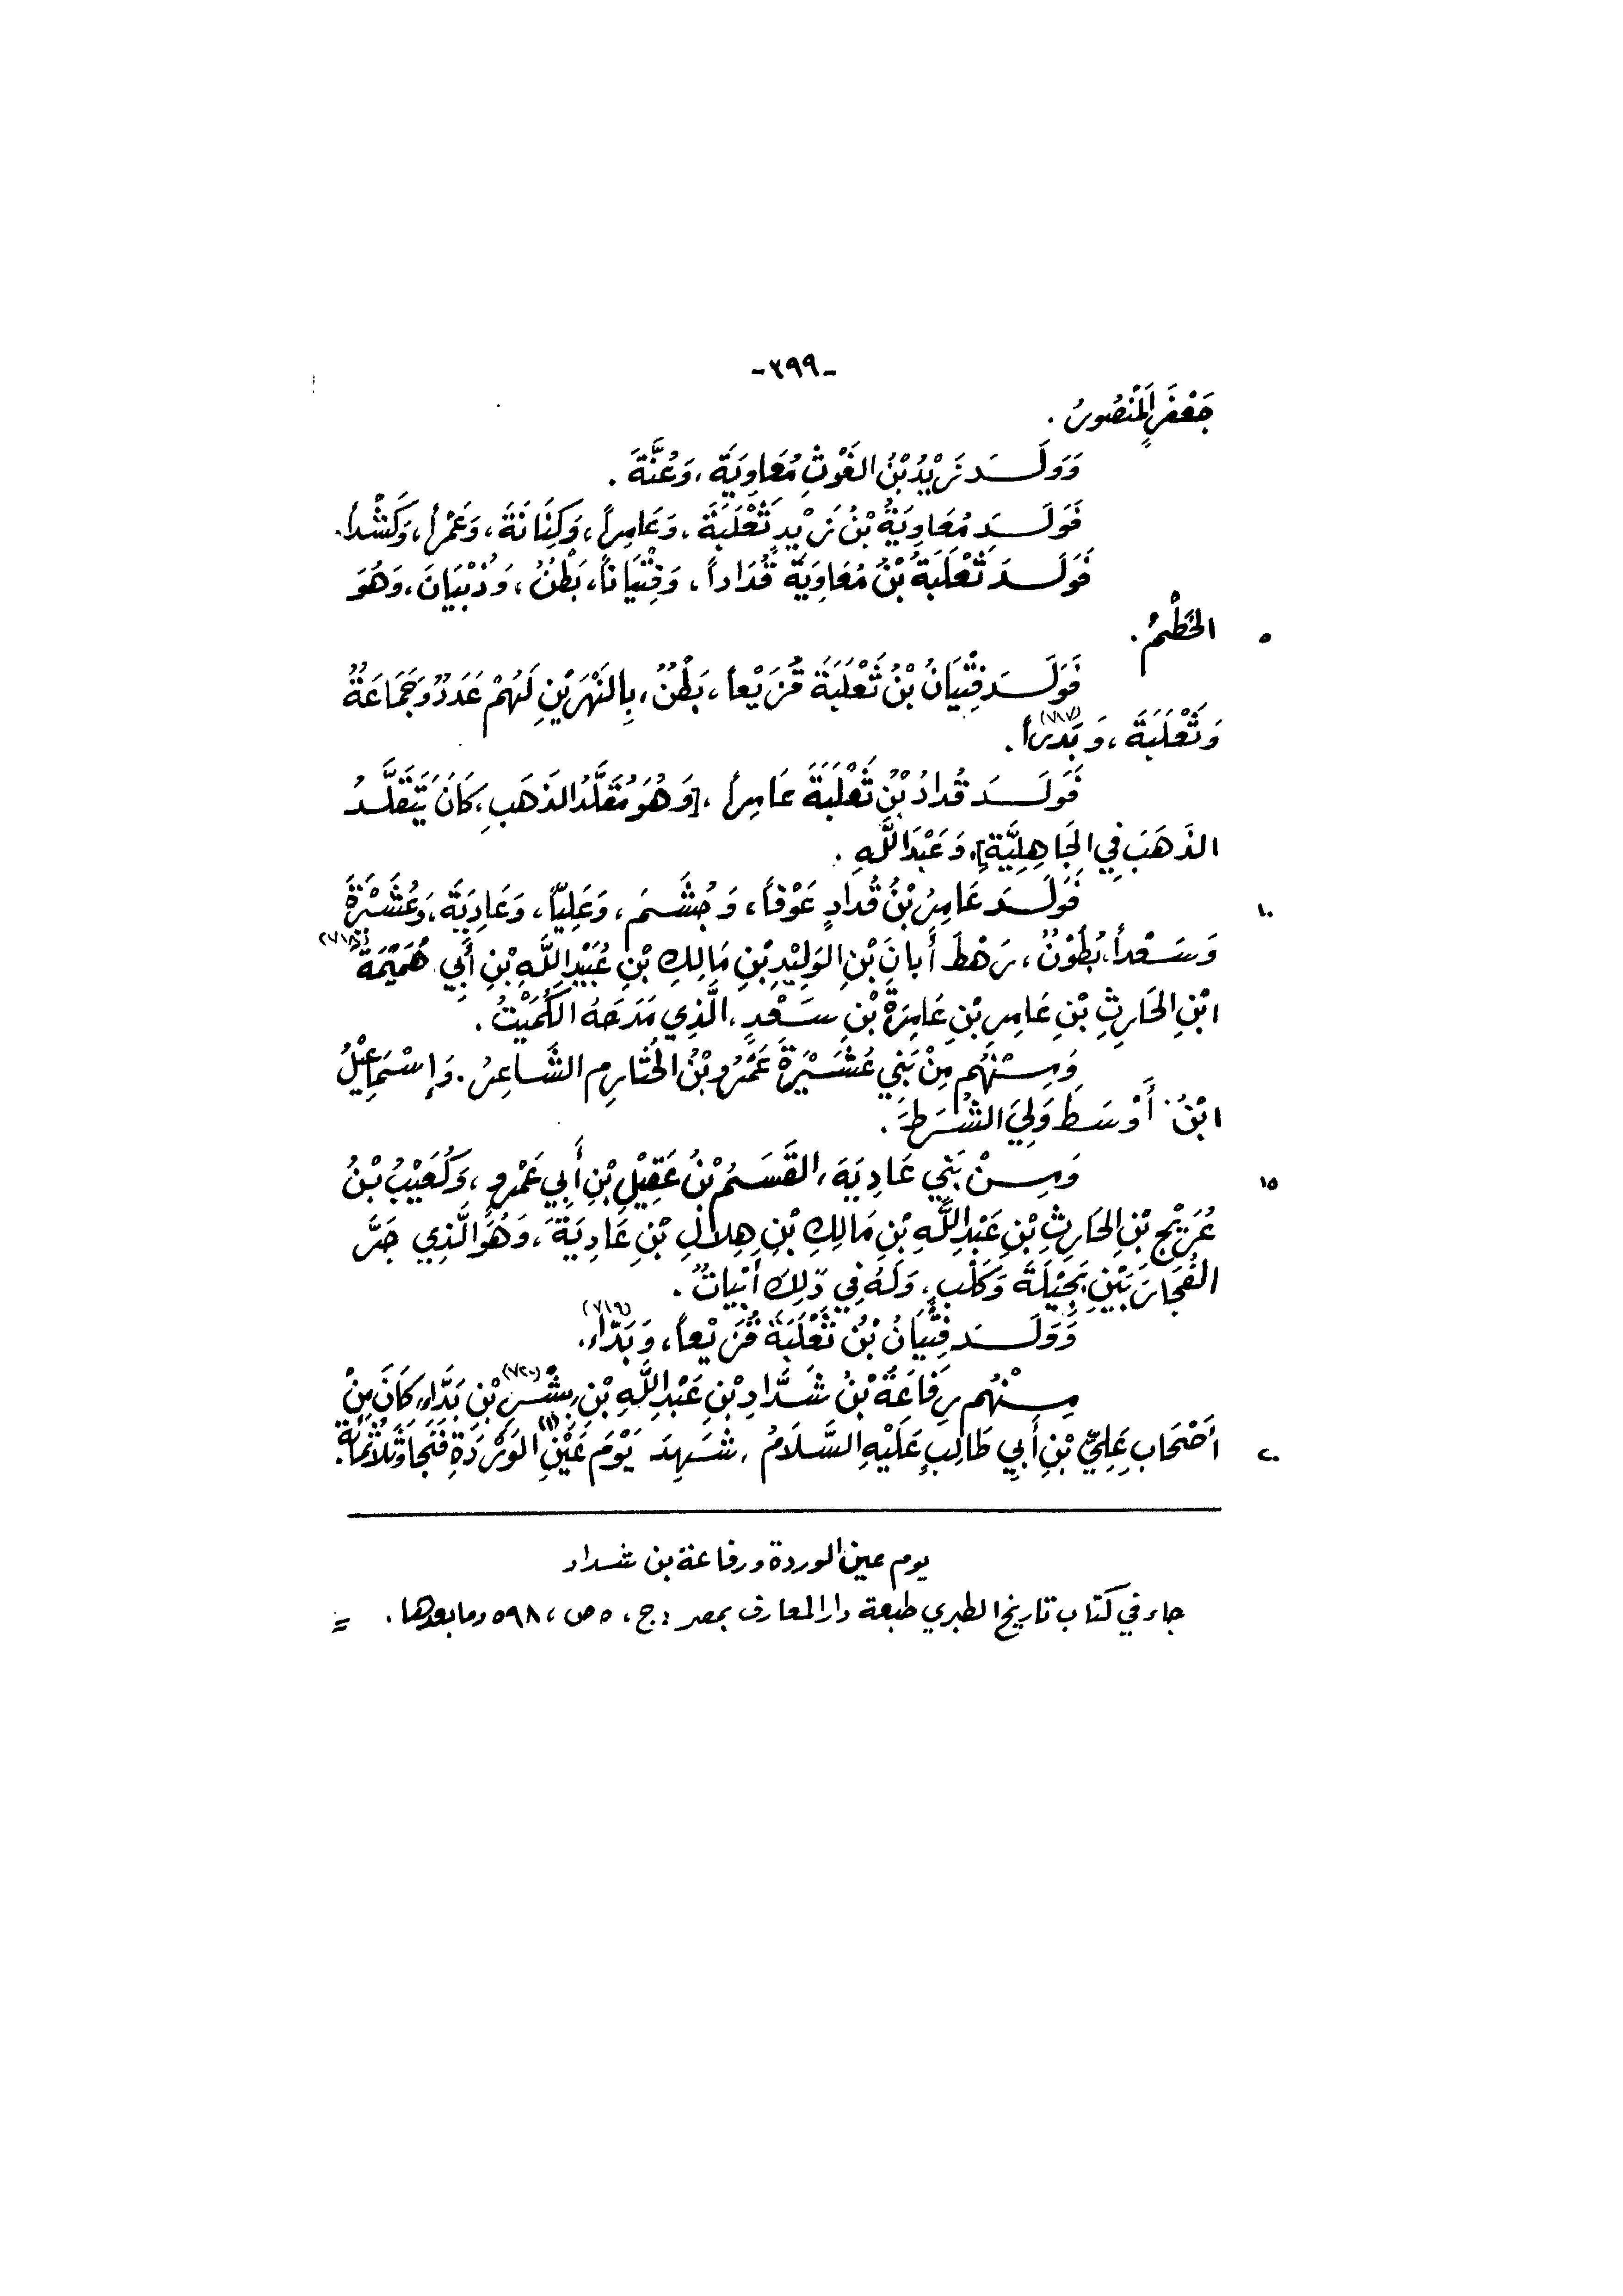 -٢٩٩-
جَعْفَرٍ المَنْصُورُ .
وَوَلَـــدَ زَيْدُ بْنُ الغَوْثِ مُعَاوِيَةَ ، وَعُنَّةَ .
فَوَلَـدَ مُعَاوِيَةُ بْنُ زَيْدٍ ثَعْلَبَةَ ، وَعَامِراً ، وَكِنَانَةَ ، وَعَمْراً ، وَكَشْداً .
فَوَلَـدَ ثَعْلَبَةُ بْنُ مُعَاوِيَةَ قُدَاداً ، وَفِتْيَاناً ، بَطْنٌ ، وَذُبْيَانَ ، وَهُوَ
٥ الخَطْمُ .
فَوَلَـدَ فِتْيَانُ بْنُ ثَعْلَبَةَ قُرَيْعاً ، بَطْنٌ ، بِالنَهْرَيْنِ لَهُمْ عَدَدٌ وَجَمَاعَةٌ
وَثَعْلَبَةَ ، وَبَدْراً (٧١٧) .
فَوَلَـدَ قُدادُ بْنُ ثَعْلَبَةَ عَامِراً ، [وَهُوَ مُقَلَّدُ الذَهَبِ ، كَانَ يَتَقَلَّـدُ
الذَهَبَ فِي الجَاهِلِيَّةِ] ، وَعَبْدَاللَّهِ .
١٠ فَوَلَـدَ عَامِرُ بْنُ قُدادٍ عَوْفاً ، وَجُشَـمَ ، وَعَلِيّاً ، وَعَادِيَةَ ، وَعُشَـيْرَةَ
وَسَـعْداً ، بُطُوْنٌ ، رَهْطَ أَبانَ بْنِ الوَلِيْدِ بْنِ مَالِكِ بْنِ عُبَيْدِ اللَّهِ بْنِ أَبِي هُمَيْمَةَ (٧١٨)
ابْنِ الحَارِثِ بْنِ عَامِرِ بْنِ عَامِرَةَ بْنِ سَـعْدٍ ، الَّذِي مَدَحَهُ الكُمَيْتُ .
وَمِـنْهُم مِنْ بَنِي عُشَـيْرَةَ عَمْرُو بْنُ الخُثَارِمِ الشَّـاعِرُ . وَإِسْـمَاعِيْلُ
ابْنُ أَوْسَـطَ وَلِيَ الشُّـرَطَ .
١٥ وَمِـــنْ بَنِي عَادِيَةَ ، القَسَـمُ بْنُ عَقِيْلِ بْنِ أَبِي عَمْرٍو ، وَكُعَيْبُ بْنُ
عُرَيْجِ بْنِ الحَارِثِ بْنِ عَبْدِ اللَّهِ بْنِ مَالِكِ بْنِ هِلَالِ بْنِ عَادِيَةَ ، وَهُوَ الَّذِي جَرَّ
الفُجَارَ بَيْنَ بَجِيْلَةَ وَكَلْبٍ ، وَلَهُ فِي ذَلِكَ أَبْيَاتٌ .
وَوَلَـــدَ فِتْيَانُ بْنُ ثَعْلَبَةَ قُرَيْعاً ، وَبَدَّاءَ (٧١٩) .
مِـنْهُم رِفَاعَةُ بْنُ شَـدَّادِ بْنِ عَبْدِ اللَّهِ بْنِ بِشْـرِ (٧٢٠) بْنِ بَدَّاءٍ كَانَ مِنْ
٢٠ أَصْحَابِ عَلِيِّ بْنِ أَبِي طَالِبٍ عَلَيْهِ السَّـلَامُ ، شَـهِدَ يَوْمَ عَيْنِ (١) الوَرْدَةِ فَنَجَا وَثَلَاثُمَائَةٍ .
يوم عين الوردة ورفاعة بن شداد
جاء في كتاب تاريخ الطبري طبعة دار المعارف بمصر ، ج ، ٥ ص ، ٥٩٨ وما بعدها . =